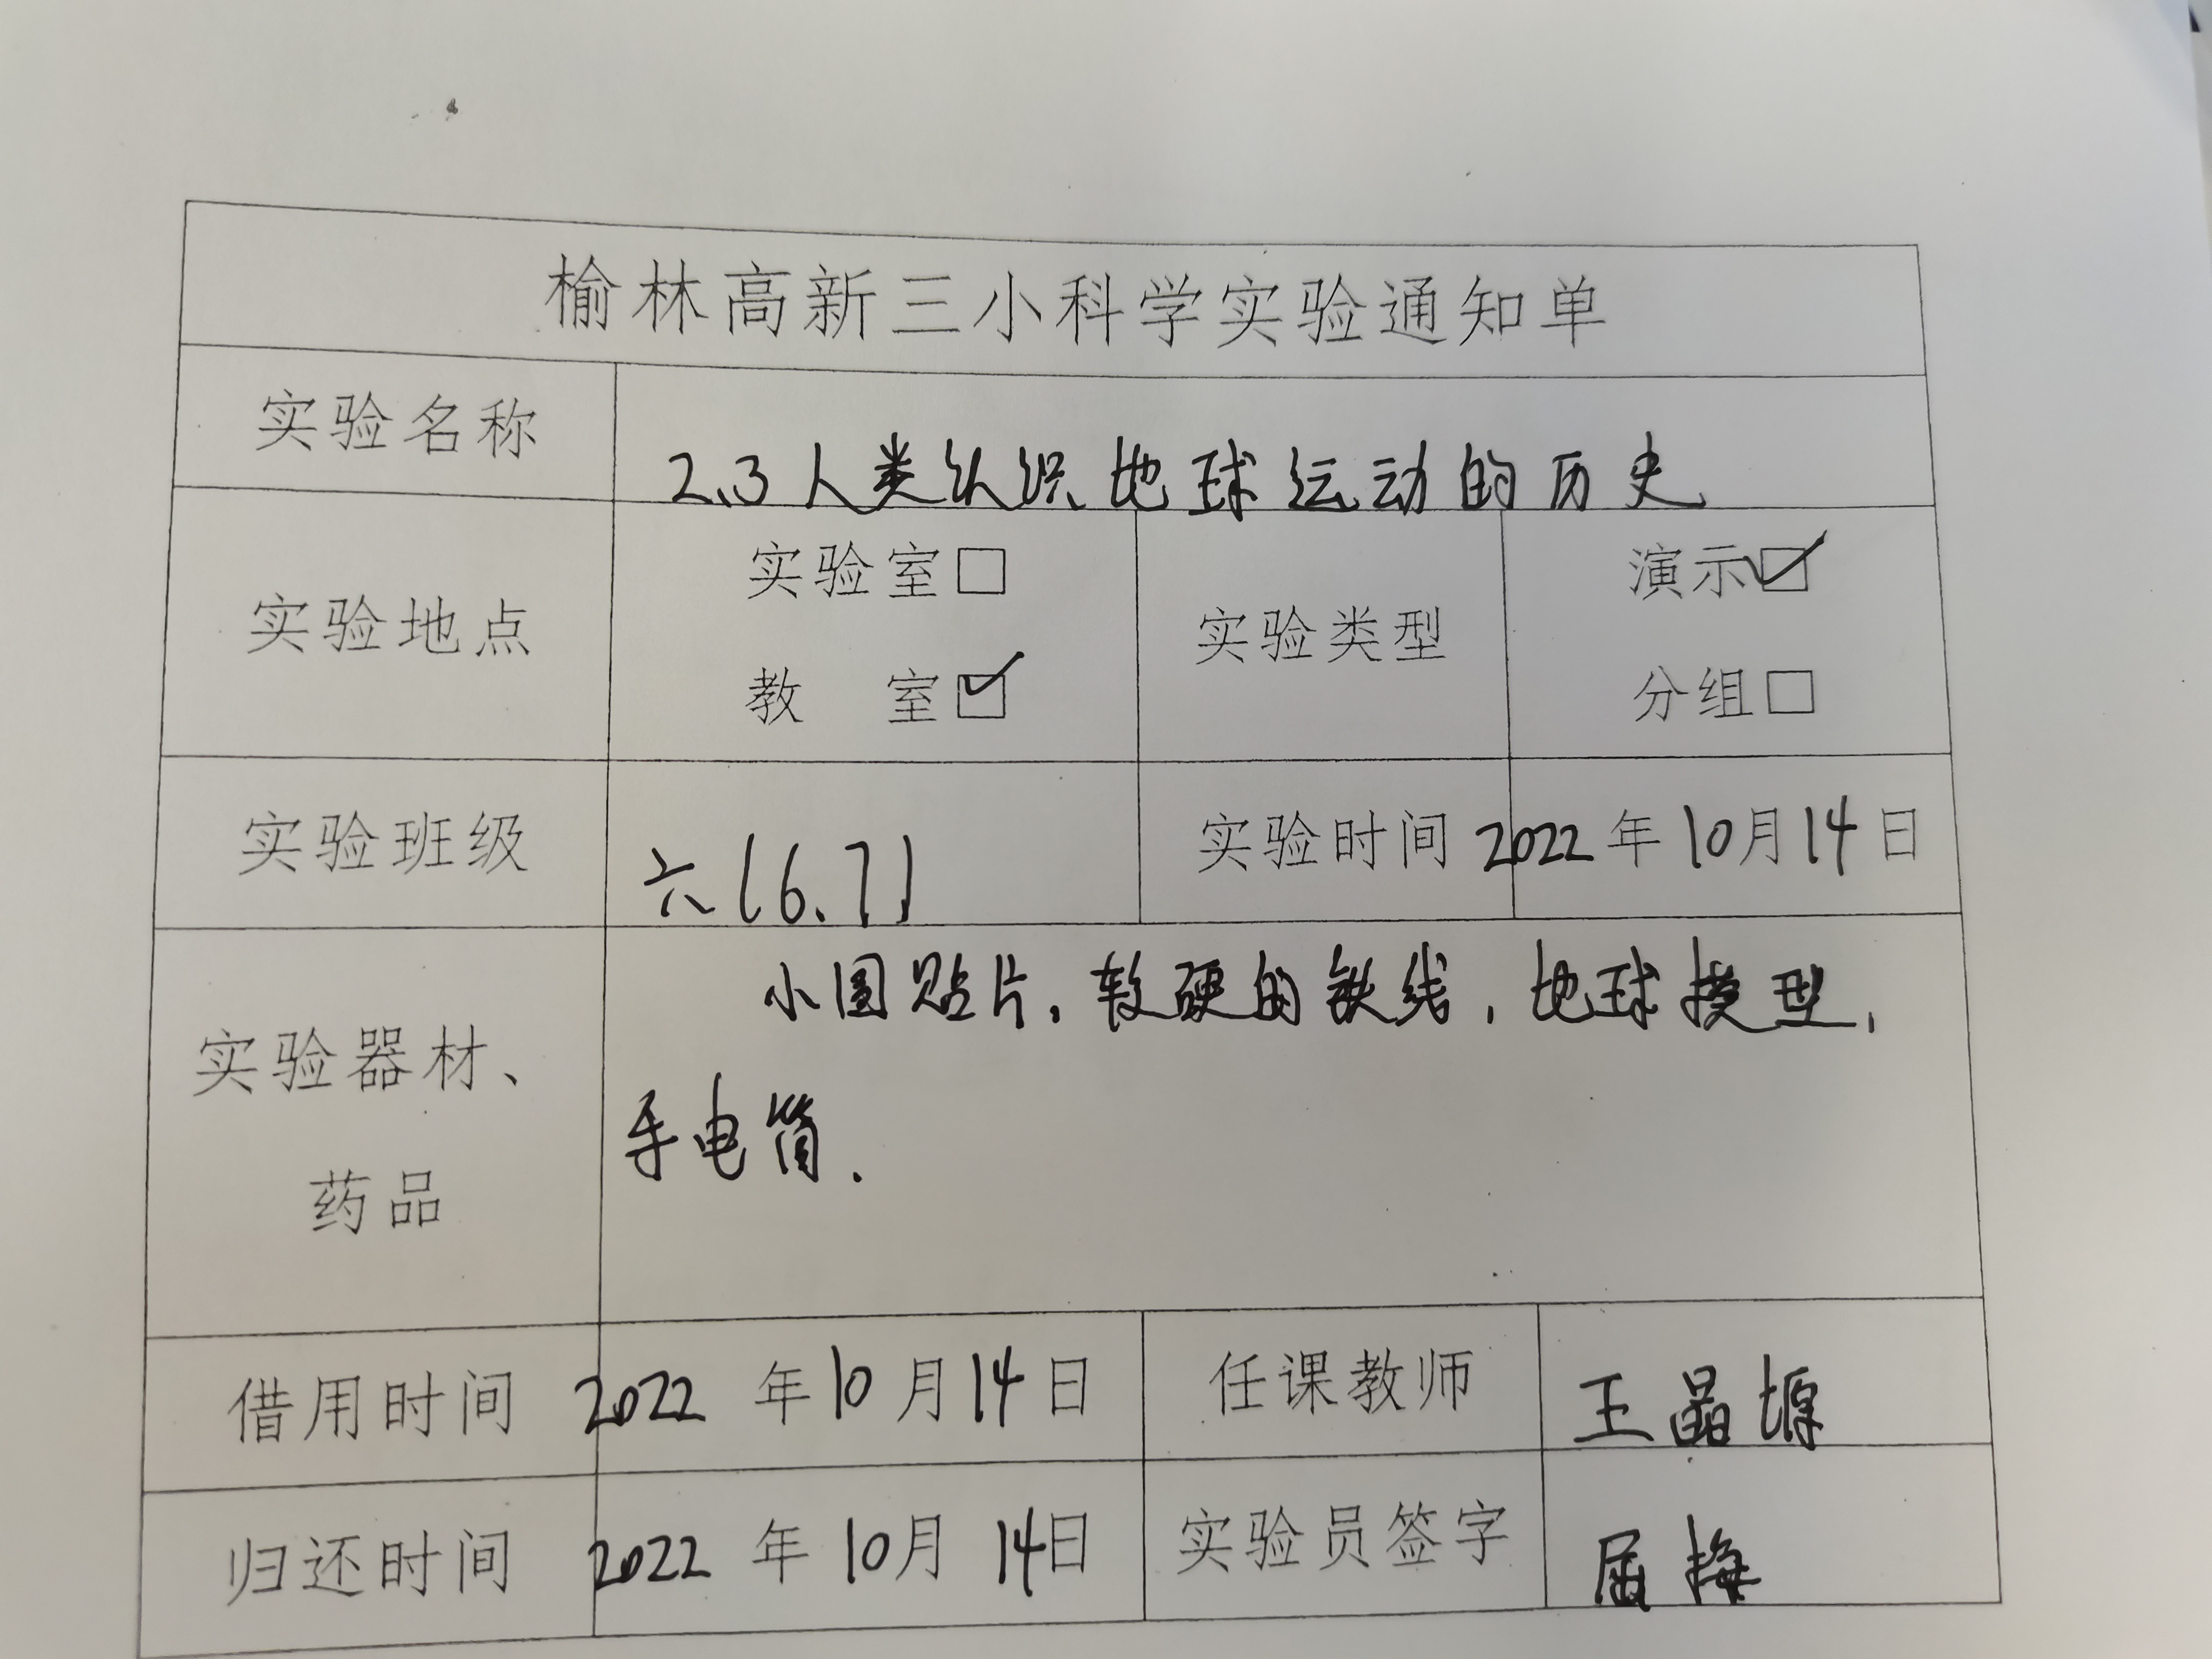 榆林高新三小科学实验通知单
实验名称 2.3人类认识地球运动的历史
实验室□ 演示☑
实验地点 实验类型
教 室☑ 分组□
实验班级 六(6.7) 实验时间 2022年10月14日
小圆贴片,较硬的铁线,地球模型,
实验器材、
手电筒.
药品
借用时间 2022年10月14日 任课教师 王晶塬
归还时间 2022年10月14日 实验员签字 屈梅